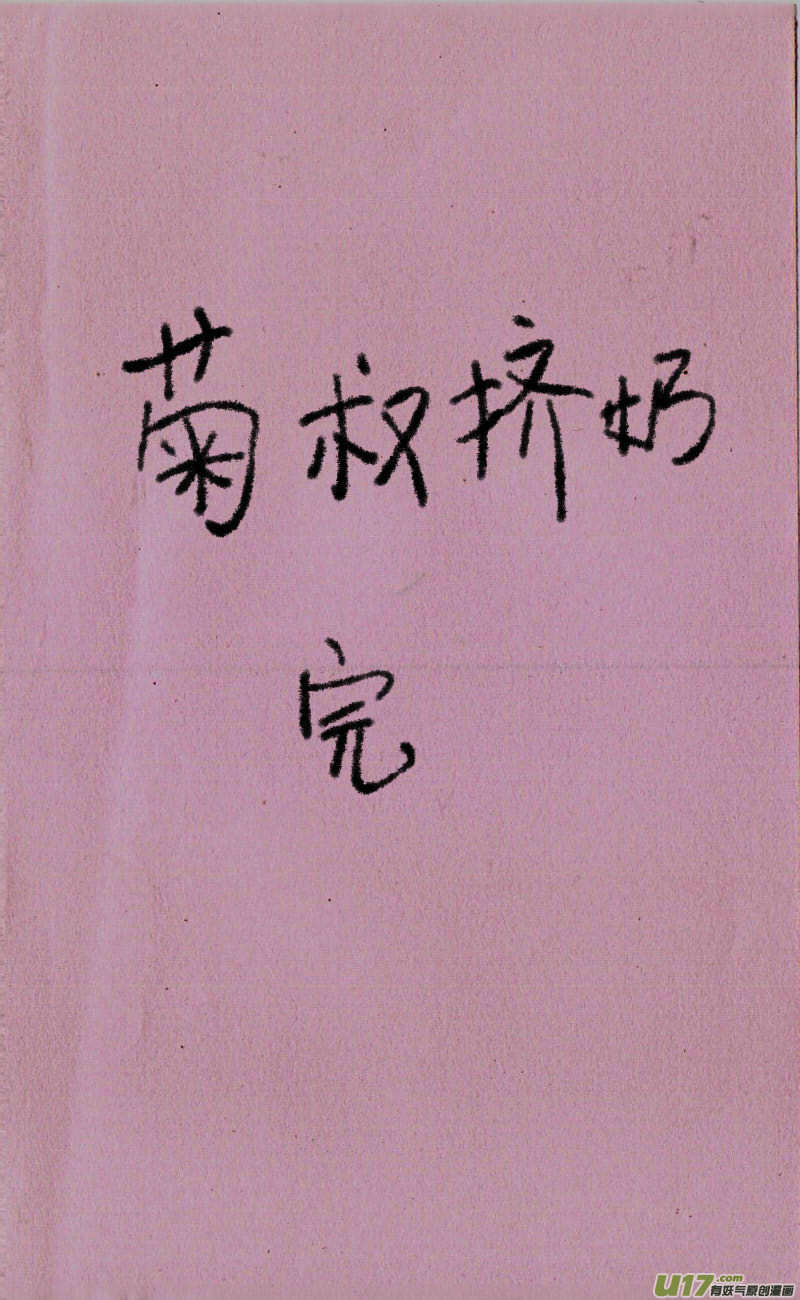 菊叔挤奶
完
U17.com
有妖气原创漫画